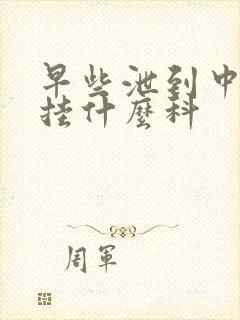 早些泄到中
挂什麼科
周軍